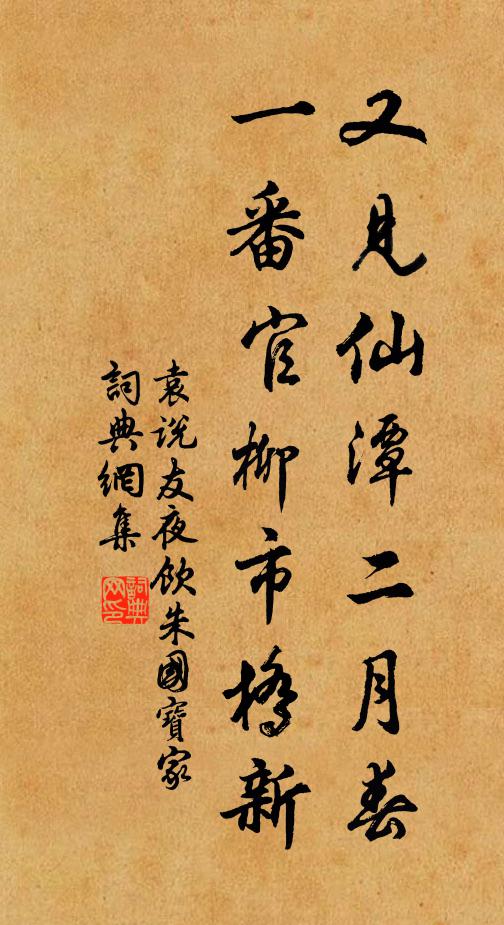 又見仙潭二月春
一番官柳市橋新
袁說友夜飲朱國寶家
詞典網集
詞典網印